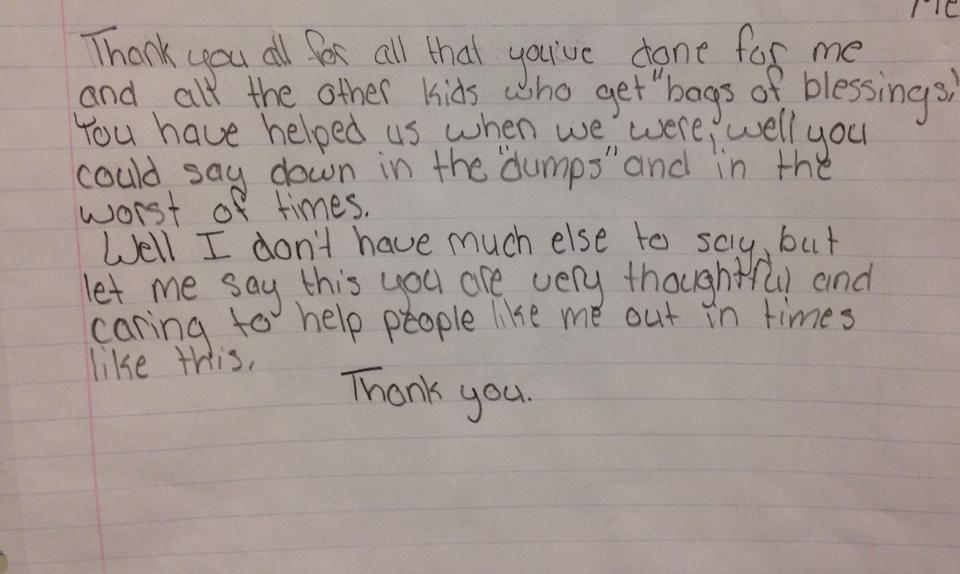 Me
Thank you all for all that you've done for me
and all the other kids who get "bags of blessings."
You have helped us when we were, well you
could say down in the "dumps" and in the
worst of times.
Well I don't have much else to say, but
let me say this you are very thoughtful and
caring to help people like me out in times
like this.
Thank you.